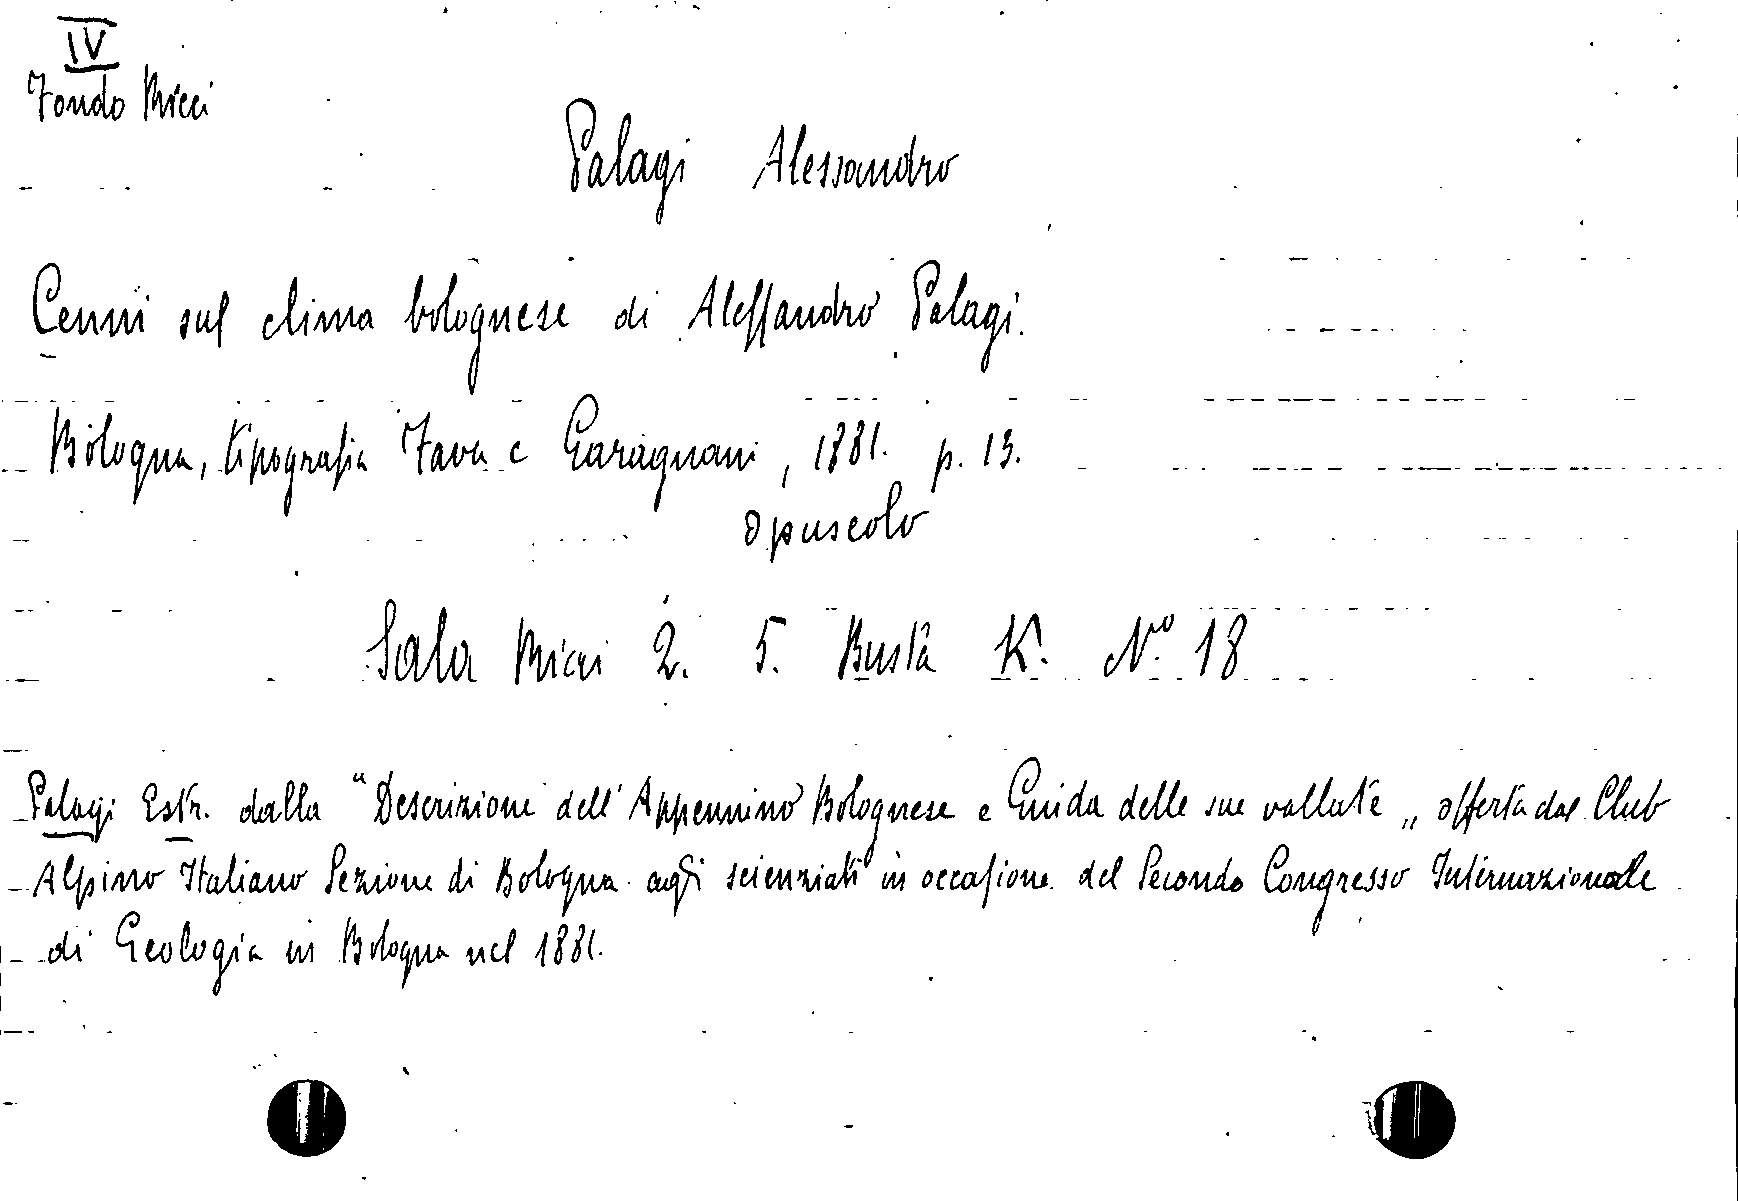 IV
Fondo Ricci
Palagi Alessandro
Cenni sul clima bolognese di Alessandro Palagi.
Bologna, tipografia Fava e Garagnani, 1881. p. 13.
opuscolo
Sala Ricci 2. 5. Busta K. N.º 18
Palagi Estr. dalla "Descrizione dell'Appennino Bolognese e Guida delle sue vallate„ offerta dal Club
Alpino Italiano Sezione di Bologna agli scienziati in occasione del Secondo Congresso Internazionale
di Geologia in Bologna nel 1881.